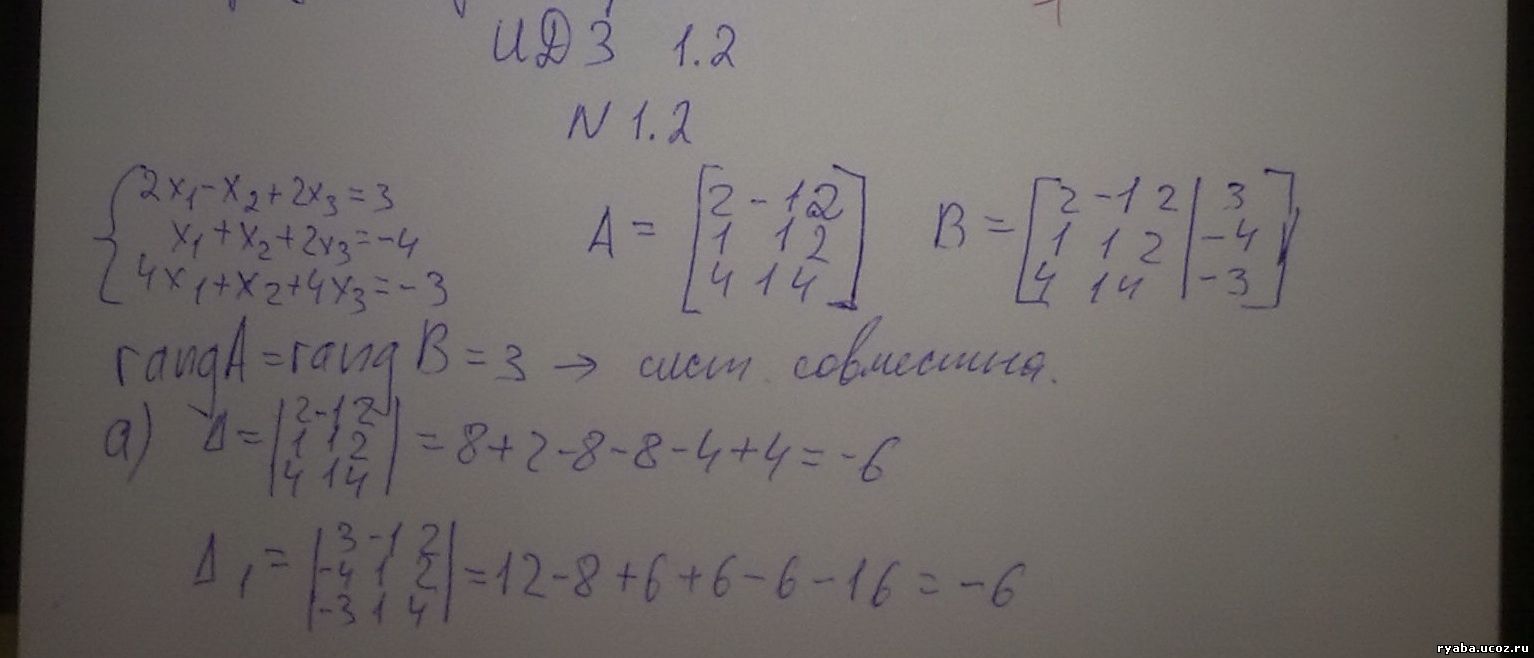 ИДЗ 1.2
N 1.2
2x₁-x₂+2x₃=3
x₁+x₂+2x₃=-4
4x₁+x₂+4x₃=-3
A = [2 -1 2
1 1 2
4 1 4]
B = [2 -1 2 | 3
1 1 2 | -4
4 1 4 | -3]
rangA=rang B=3 → сист. совместна.
а) Δ= |2 -1 2
1 1 2
4 1 4| =8+2-8-8-4+4=-6
Δ₁= |3 -1 2
-4 1 2
-3 1 4| =12-8+6+6-6-16=-6
ryaba.ucoz.ru